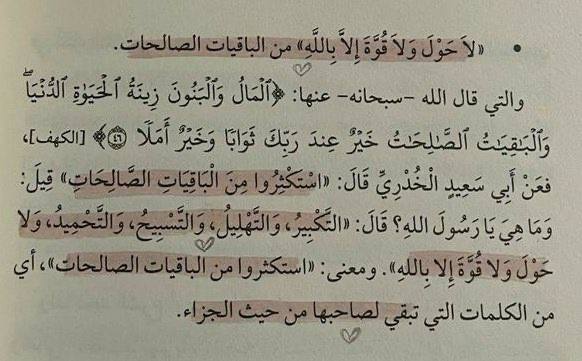 • «لاَ حَوْلَ وَلاَ قُوَّةَ إِلاَّ بِاللَّهِ» من الباقيات الصالحات.
والتي قال الله –سبحانه– عنها: ﴿ٱلْمَالُ وَٱلْبَنُونَ زِينَةُ ٱلْحَيَوٰةِ ٱلدُّنْيَاۖ
وَٱلْبَـٰقِيَـٰتُ ٱلصَّـٰلِحَـٰتُ خَيْرٌ عِندَ رَبِّكَ ثَوَابًا وَخَيْرٌ أَمَلًا ٤٦﴾ [الكهف]،
فعَنْ أَبِي سَعِيدٍ الْخُدْرِيِّ قَالَ: «اسْتَكْثِرُوا مِنَ الْبَاقِيَاتِ الصَّالِحَاتِ» قِيلَ:
وَمَا هِيَ يَا رَسُولَ اللهِ؟ قَالَ: «التَّكْبِيرُ، وَالتَّهْلِيلُ، وَالتَّسْبِيحُ، وَالتَّحْمِيدُ، وَلا
حَوْلَ وَلا قُوَّةَ إِلا بِاللهِ». ومعنى: «استكثروا من الباقيات الصالحات»، أي
من الكلمات التي تبقي لصاحبها من حيث الجزاء.